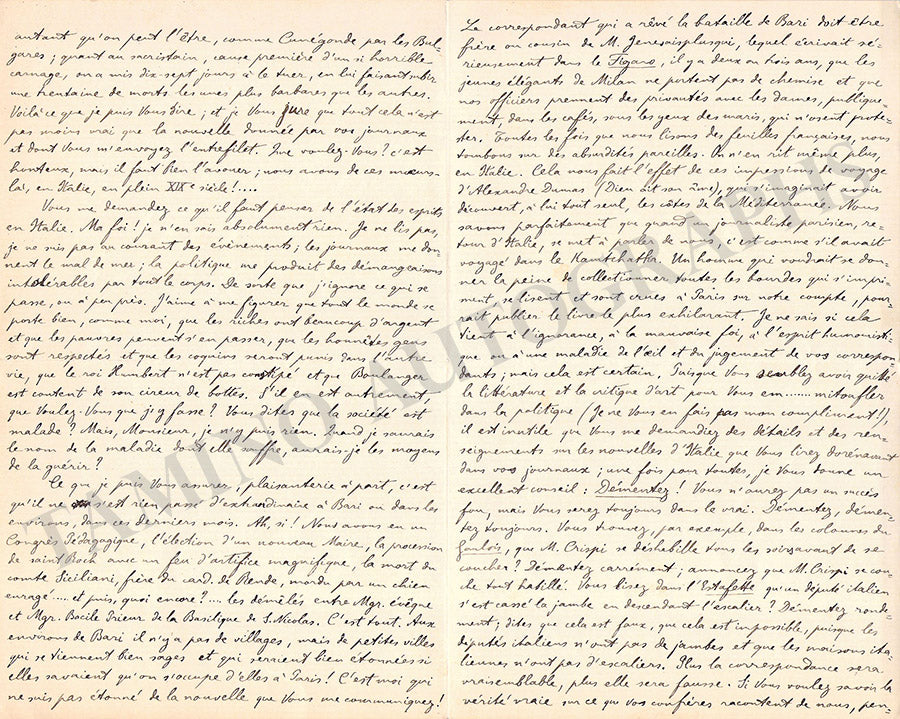 autant qu'on peut l'être, comme Cunégonde par les Bul-
gares ; quant au sacristain, cause première d'un si horrible
carnage, on a mis dix-sept jours à le tuer, en lui faisant subir
une trentaine de morts les unes plus barbares que les autres.
Voilà ce que je puis Vous dire ; et je Vous jure que tout cela n'est
pas moins vrai que la nouvelle donnée par vos journaux
et dont Vous m'envoyez l'entrefilet. Que voulez-Vous ? c'est
honteux, mais il faut bien l'avouer ; nous avons de ces mœurs-
là, en Italie, en plein XIXe siècle !....
Vous me demandez ce qu'il faut penser de l'état des esprits
en Italie. Ma foi ! je n'en sais absolument rien. Je ne lis pas,
je ne suis pas au courant des événements ; les journaux me don-
nent le mal de mer ; la politique me produit des démangeaisons
intolérables par tout le corps. De sorte que j'ignore ce qui se
passe, ou à peu près. J'aime à me figurer que tout le monde se
porte bien, comme moi, que les riches ont beaucoup d'argent
et que les pauvres peuvent s'en passer, que les honnêtes gens
sont respectés et que les coquins seront punis dans l'autre
vie, que le roi Humbert n'est pas constipé et que Boulanger
est content de son cireur de bottes. S'il en est autrement,
que Voulez-Vous que j'y fasse ? Vous dites que la société est
malade ? Mais, Monsieur, je n'y puis rien. Quand je saurais
le nom de la maladie dont elle souffre, aurais-je les moyens
de la guérir ?
Ce que je puis Vous assurer, plaisanterie à part, c'est
qu'il ne s'est rien passé d'extraordinaire à Bari ou dans les
environs, dans ces derniers mois. Ah, si ! Nous avons eu un
Congrès pédagogique, l'élection d'un nouveau Maire, la procession
de saint Roch avec un feu d'artifice magnifique, la mort du
comte Siciliani, frère du card. de Rende, mordu par un chien
enragé.... et puis, quoi encore ?.... les démêlés entre Mgr. évêque
et Mgr. Bocile Prieur de la Basilique de S. Nicolas. C'est tout. Aux
environs de Bari il n'y a pas de villages, mais de petites villes
qui se tiennent bien sages et qui seraient bien étonnées si
elles savaient qu'on s'occupe d'elles à Paris ! C'est moi qui
ne suis pas étonné de la nouvelle que Vous me communiquez !
Le correspondant qui a rêvé la bataille de Bari doit être
frère ou cousin de M. Jenesaisplusqui, lequel écrivait sé-
rieusement dans le Figaro, il y a deux ou trois ans, que les
jeunes élégants de Milan ne portent pas de chemise et que
nos officiers prennent des privautés avec les dames, publique-
ment, dans les cafés, sous les yeux des maris, qui n'osent protes-
ter. Toutes les fois que nous lisons des feuilles françaises, nous
tombons sur des absurdités pareilles. On n'en rit même plus,
en Italie. Cela nous fait l'effet de ces impressions de voyage
d'Alexandre Dumas (Dieu ait son âme), qui s'imaginait avoir
découvert, à lui tout seul, les côtes de la Méditerranée. Nous
savons parfaitement que quand un journaliste parisien, re-
tour d'Italie, se met à parler de nous, c'est comme s'il avait
voyagé dans le Kamtchatka. Un homme qui voudrait se don-
ner la peine de collectionner toutes les bourdes qui s'impri-
ment, se lisent et sont crues à Paris sur notre compte, pour-
rait publier le livre le plus exhilarant. Je ne sais si cela
tient à l'ignorance, à la mauvaise foi, à l'esprit humoristi-
que ou à une maladie de l'œil et du jugement de vos correspon
dants ; mais cela est certain. Puisque Vous semblez avoir quitté
la littérature et la critique d'art pour Vous em....... mitoufler
dans la politique (Je ne Vous en fais pas mon compliment !),
il est inutile que Vous me demandiez des détails et des ren-
seignements sur les nouvelles d'Italie que Vous lirez dorénavant
dans vos journaux ; une fois pour toutes, je Vous donne un
excellent conseil : Démentez ! Vous n'aurez pas un succès
fou, mais Vous serez toujours dans le vrai. Démentez, démen-
tez toujours. Vous trouvez, par exemple, dans les colonnes du
Gaulois, que M. Crispi se déshabille tous les soirs avant de se
coucher ? Démentez carrément ; annoncez que M. Crispi se cou-
che tout habillé. Vous lisez dans l'Estafette qu'un député italien
s'est cassé la jambe en descendant l'escalier ? Démentez ronde
ment ; dites que cela est faux, que cela est impossible, puisque les
députés italiens n'ont pas de jambes et que les maisons ita-
liennes n'ont pas d'escaliers. Plus la correspondance sera
vraisemblable, plus elle sera fausse. Si Vous voulez savoir la
vérité vraie sur ce que vos confrères racontent de nous, pen-
TAMINO AUTOGRAPHS